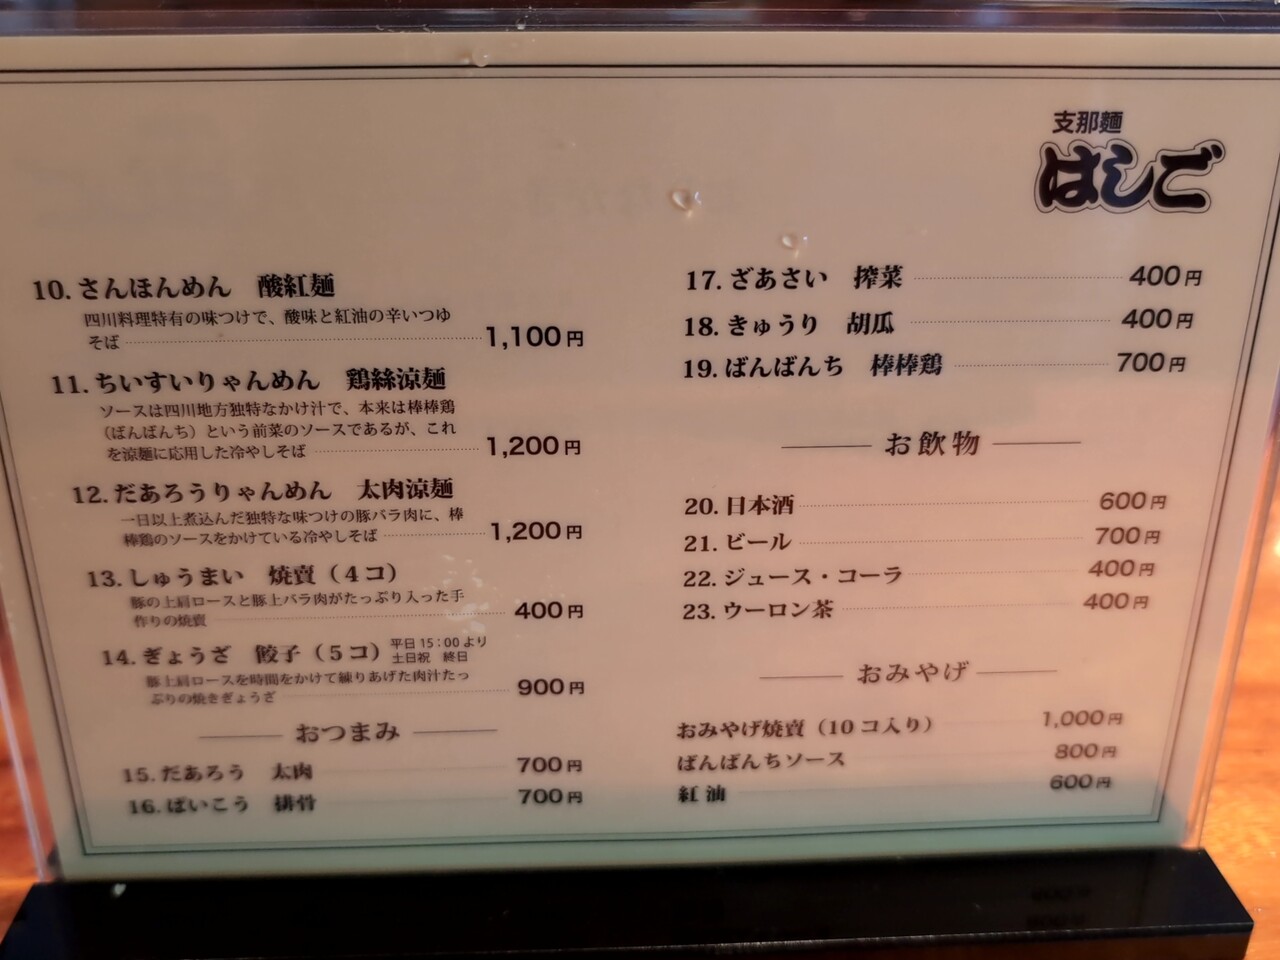 支那麺
はしご
10. さんほんめん 酸紅麺
四川料理特有の味つけで、酸味と紅油の辛いつゆ
そば 1,100円
11. ちいすいりゃんめん 鶏絲涼麺
ソースは四川地方独特なかけ汁で、本来は棒棒鶏
（ばんばんち）という前菜のソースであるが、これ
を涼麺に応用した冷やしそば 1,200円
12. だあろうりゃんめん 太肉涼麺
一日以上煮込んだ独特な味つけの豚バラ肉に、棒
棒鶏のソースをかけている冷やしそば 1,200円
13. しゅうまい 焼賣（4コ）
豚の上肩ロースと豚上バラ肉がたっぷり入った手
作りの焼賣 400円
14. ぎょうざ 餃子（5コ） 平日15：00より
土日祝 終日
豚上肩ロースを時間をかけて練りあげた肉汁たっ
ぷりの焼きぎょうざ 900円
おつまみ
15. だあろう 太肉 700円
16. ぱいこう 排骨 700円
17. ざあさい 搾菜 400円
18. きゅうり 胡瓜 400円
19. ばんばんち 棒棒鶏 700円
お飲物
20. 日本酒 600円
21. ビール 700円
22. ジュース・コーラ 400円
23. ウーロン茶 400円
おみやげ
おみやげ焼賣（10コ入り） 1,000円
ばんばんちソース 800円
紅油 600円